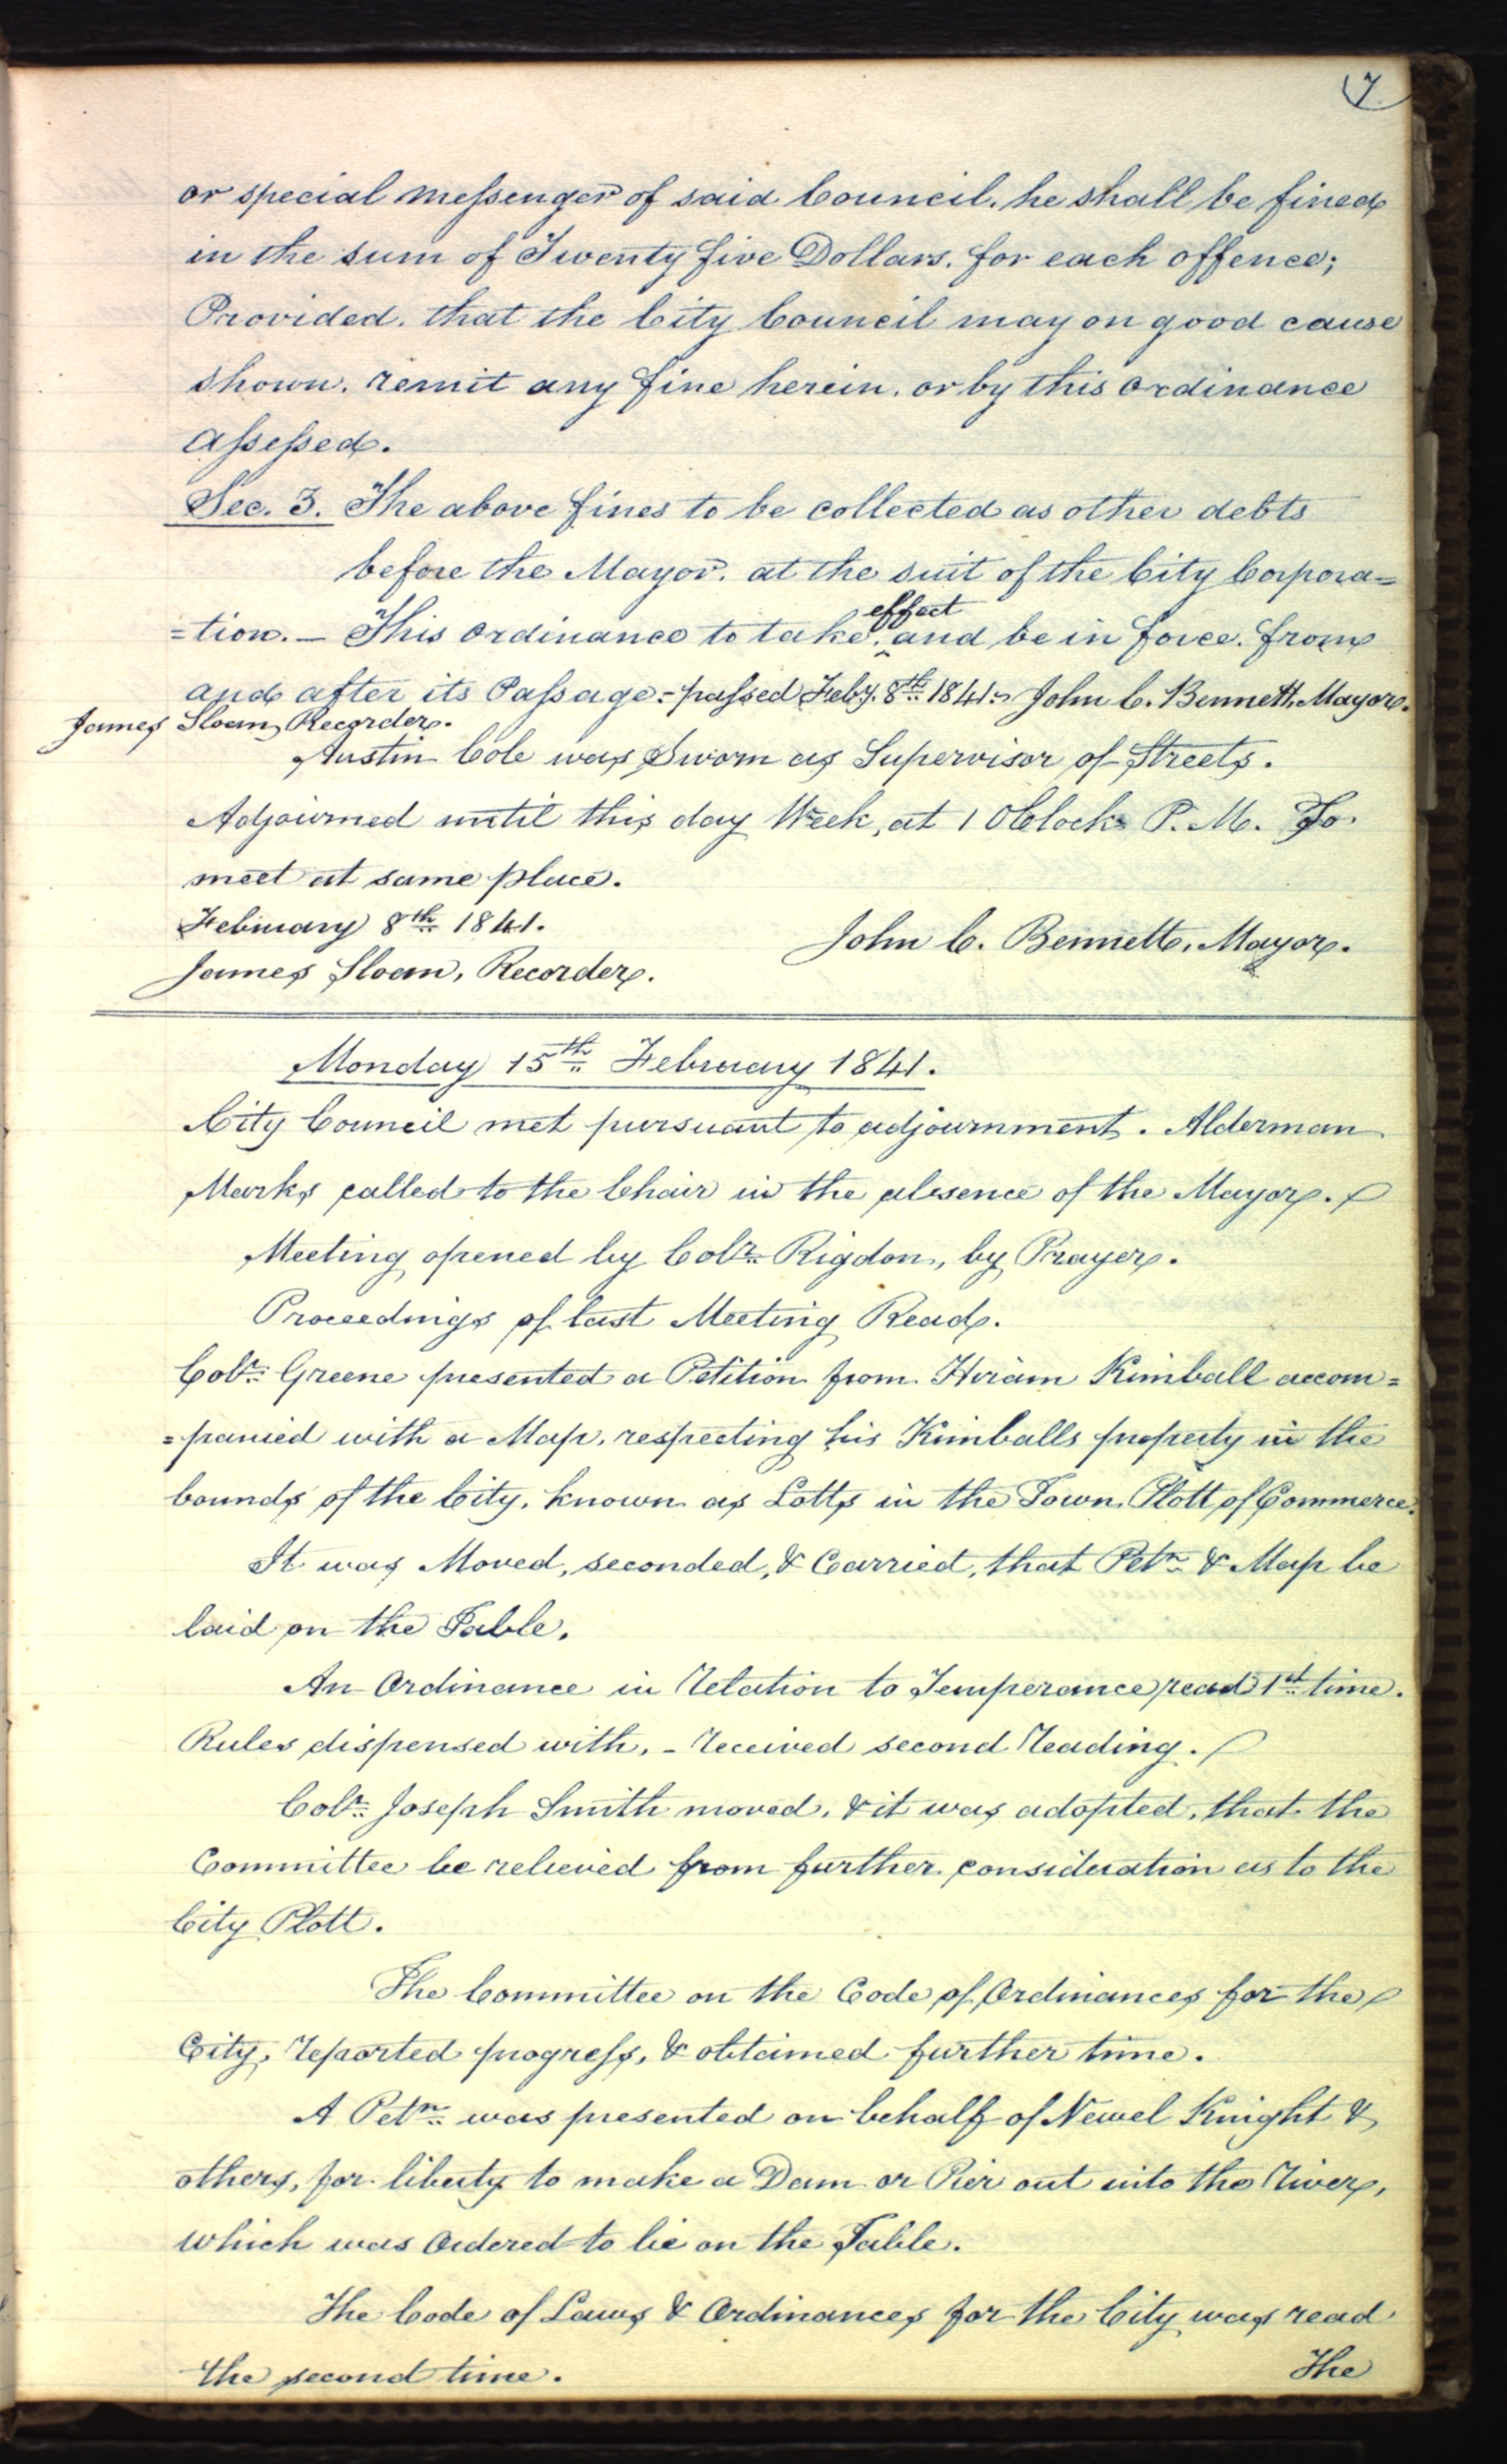 7
or special Messenger of said Council. he shall be fined
in the sum of Twenty five Dollars. for each offence;
Provided. that the City Council may on good cause
shown. remit any fine herein. or by this ordinance
assessed.
Sec. 3. The above fines to be collected as other debts
before the Mayor. at the suit of the City Corpora=
=tion. — This ordinance to take effect, and be in force. from
and after its Passage. - passed Feby. 8th. 1841. John C. Bennett, Mayor.
James Sloan, Recorder.
Austin Cole was Sworn as Supervisor of Streets.
Adjourned until this day Week, at 1 OClock P. M. To
meet at same place.
February 8th. 1841.
John C. Bennett, Mayor.
James Sloan, Recorder.
Monday 15th. February 1841.
City Council met pursuant to adjournment. Alderman
Marks called to the Chair in the absence of the Mayor.
Meeting opened by Colr. Rigdon, by Prayer.
Proceedings of last Meeting Read.
Colr. Greene presented a Petition from Hiram Kimball accom=
=panied with a Map, respecting his Kimballs property in the
bounds of the City, known as Lotts in the Town Plott of Commerce.
It was Moved, seconded, & Carried, that Petn. & Map be
laid on the Table.
An Ordinance in relation to Temperance read 1st. time.
Rules dispensed with, - received second reading.
Colr. Joseph Smith moved, & it was adopted, that the
Committee be relieved from further consideration as to the
City Plott.
The Committee on the Code of Ordinances for the
City, reported progress, & obtained further time.
A Petn. was presented on behalf of Newel Knight &
others, for liberty to make a Dam or Pier out into the river,
which was Ordered to lie on the Table.
The Code of Laws & Ordinances for the City was read
the second time.
The